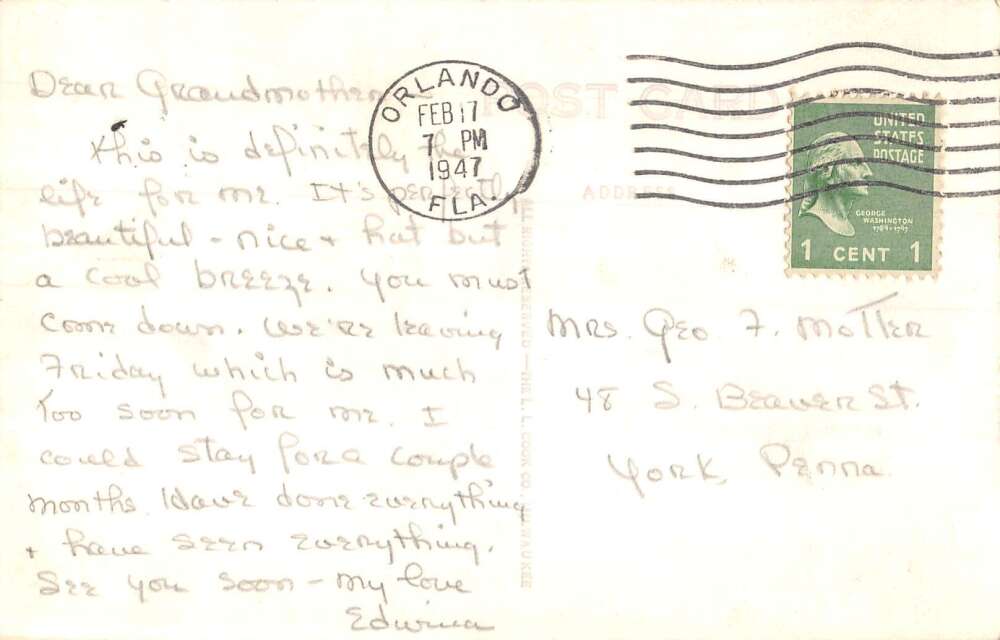 Dear Grandmother
This is definitely the
life for me. It's perfectly
beautiful - nice + hot but
a cool breeze. You must
come down. We're leaving
Friday which is much
too soon for me. I
could stay for a couple
months. Have done everything
+ have seen everything.
See you soon - My love
Edwina
POST CARD
ADDRESS
ORLANDO
FEB 17
7 PM
1947
FLA.
UNITED
STATES
POSTAGE
GEORGE
WASHINGTON
1789-1797
1 CENT 1
ALL RIGHTS RESERVED — THE L. L. COOK CO. MILWAUKEE
Mrs. Geo F. Motter
48 S. Beaver St.
York, Penna.